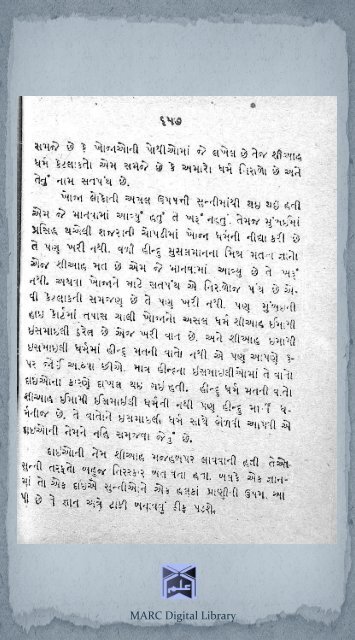 ૬૫૭
સમજે છે કે ખોજાઓની પોથીઓમાં જે લખેલ છે તેજ શીઆહ
ધર્મ કેટલાકતો એમ સમજે છે કે અમારો ધર્મ નિરાળો છે અને
તેનું નામ સતપંથ છે.
ખોજા લોકોની અસલ ઉપપત્તી સુન્નીમાંથી થઇ હતી
એમ જે માનવામાં આવ્યું હતું તે ખરૂં નહતું. તેમજ મુંબઇમાં
પ્રસિદ્ધ થએલી ચોપડીમાં ખોજા ધર્મની નીંદા કરી છે
તે પણ ખરી નથી. વળી હીન્દુ મુસલમાનના મિશ્ર મતના
એજ શીઆહ મત છે એમ જે માનવામાં આવ્યું છે તે ખરૂં
નથી. અથવા ખોજાને માટે સતપંથ એ નિરાળોજ પંથ છે એ-
વી કેટલાકની સમજણ છે તે પણ ખરી નથી. પણ મુંબઇની
હાઇ કોર્ટમાં તપાસ ચાલી ખોજાનો અસલ ધર્મ શીઆહ ઈમામી
ઇસમાઇલી ઠરેલ છે એજ ખરી વાત છે. અને શીઆહ ઇમામી
ઇસમાઇલી ધર્મમાં હીન્દુ મતની વાતો નથી એ પણ આપણે ઉ-
પર જોઈ આવ્યા છીએ. માત્ર હીન્દના ઇસમાઇલીઓમાં તે વાતો
દાઇઓના કારણે દાખલ થઇ ગઇ હતી. હીન્દુ ધર્મ મતની વાતો
શીઆહ ઈમામી ઈસમાઇલી ધર્મની નથી પણ હીન્દુ ધ-
ર્મનીજ છે. તે વાતોને ઇસમાઇલી ધર્મ સાથે ભેળવી આપવી એ
દાઇઓની નેમને નહિ સમજવા જેવું છે.
દાઇઓની નેમ શીઆહ મજહબપર લાવવાની હતી તેઓ
સુન્ની તરફતો બહુજ તિરસ્કાર બતાવતા હતા. એક જ્ઞાન-
માં તો એક દાઇએ સુન્નીઓને એક હલકાં પ્રાણીની ઉપમા આ
પી છે તે જ્ઞાન અત્રે ટાંકી બતાવવું ઠીક પડશે.
MARC Digital Library